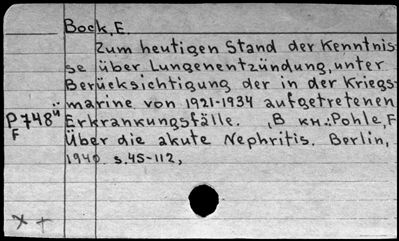 Bock, E.
Zum heutigen Stand der Kenntnis-
se über Lungenentzündung, unter
Berücksichtigung der in der Kriegs-
marine von 1921-1934 aufgetretenen
Erkrankungsfälle. , В кн.: Pohle, F
Über die akute Nephritis. Berlin,
1940 s. 45-112,
P748"
F